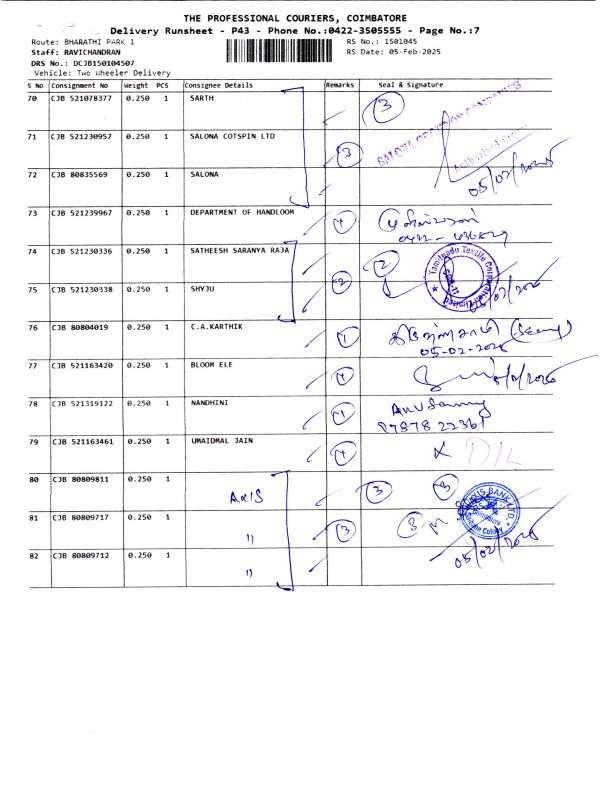 THE PROFESSIONAL COURIERS, COIMBATORE
Delivery Runsheet - P43 - Phone No.:0422-3505555 - Page No.:7
Route: BHARATHI PARK 1 RS No.: 1501045
Staff: RAVICHANDRAN RS Date: 05-Feb-2025
DRS No.: DCJB150104507
Vehicle: Two Wheeler Delivery
S No Consignment No Weight PCS Consignee Details Remarks Seal & Signature
70 CJB 521078377 0.250 1 SARTH 3
71 CJB 521230957 0.250 1 SALONA COTSPIN LTD 3
72 CJB 80835569 0.250 1 SALONA
73 CJB 521239967 0.250 1 DEPARTMENT OF HANDLOOM
74 CJB 521230336 0.250 1 SATHEESH SARANYA RAJA 2
75 CJB 521230338 0.250 1 SHYJU 2
76 CJB 80804019 0.250 1 C.A.KARTHIK 1
05-02-2025
77 CJB 521163420 0.250 1 BLOOM ELE
78 CJB 521319122 0.250 1 NANDHINI 1
87878 22361
79 CJB 521163461 0.250 1 UMAIDMAL JAIN X D/L
80 CJB 80809811 0.250 1 AXIS 3 3
81 CJB 80809717 0.250 1 11 3 3
AXIS BANK LTD.
82 CJB 80809712 0.250 1 11
05/02/2025